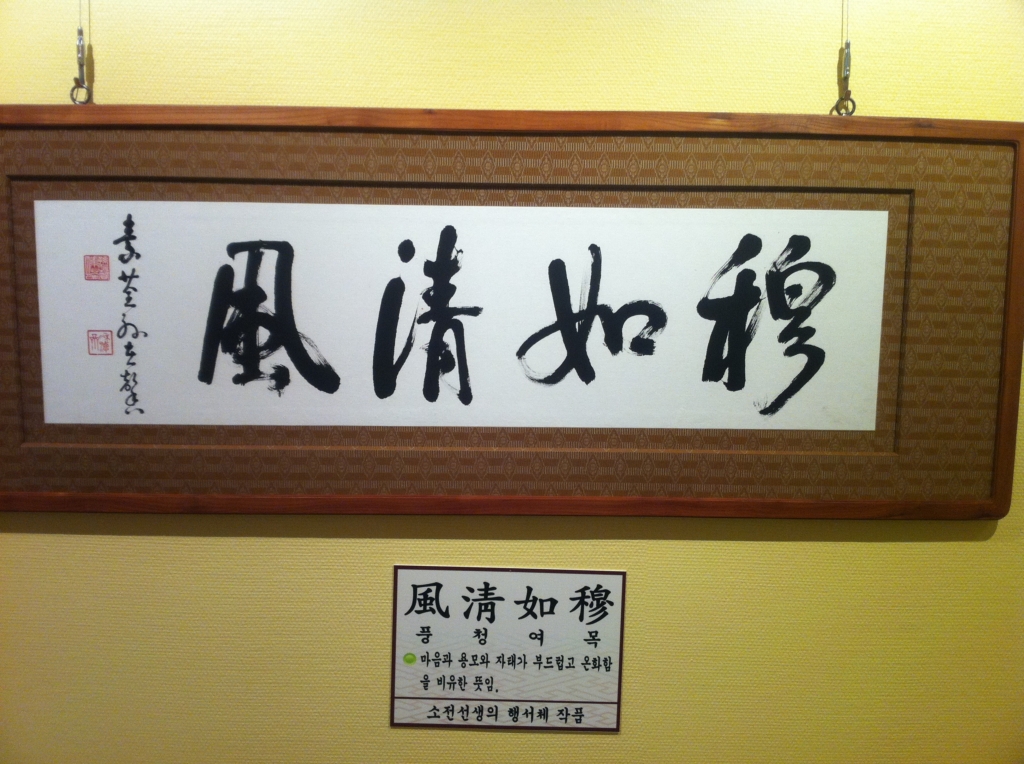 穆如清風
素荃孫在馨
穆如淸風
목 여 청 풍
마음과 용모와 자태가 부드럽고 온화함
을 비유한 뜻임.
소전선생의 행서체 작품